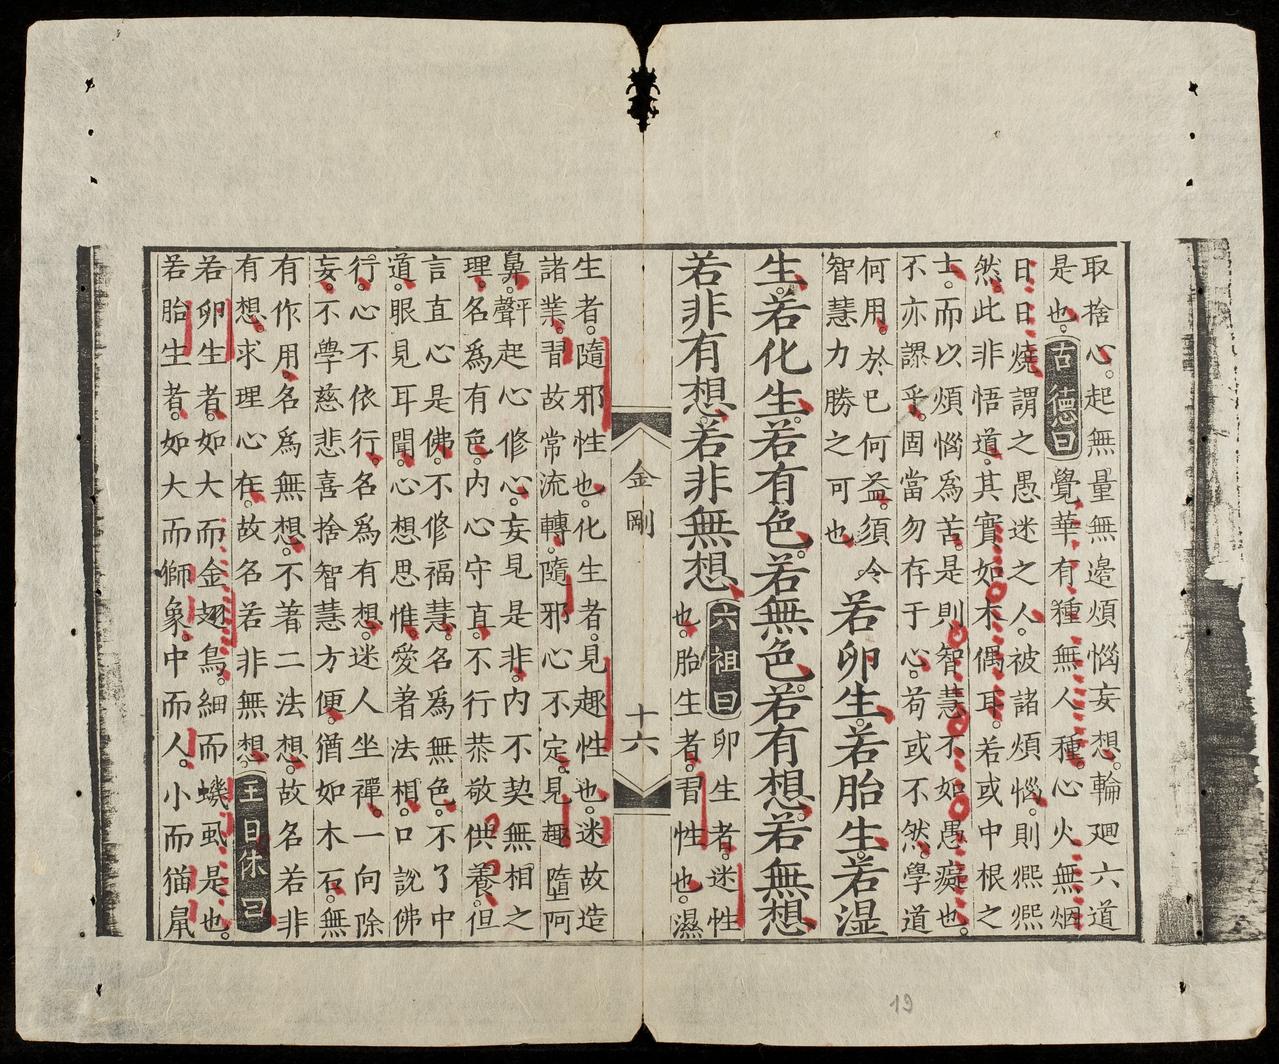 取捨心。起無量無邊煩惱妄想。輪廻六道
是也。古德曰覺華有種無人種。心火無烟
日日燒。謂之愚迷之人。被諸煩惱。則熈熈
然。此非悟道。其實如木偶耳。若或中根之
士。而以煩惱為苦。是則智慧不如愚癡也。
不亦謬乎。固當勿存于心。苟或不然。學道
何用。於巳何益。須令
智慧力勝之可也。
若卵生。若胎生。若湿
生。若化生。若有色。若無色。若有想。若無想。
若非有想。若非無想。
六祖曰卵生者。迷性
也。胎生者。習性也。濕
金剛
十六
生者。隨邪性也。化生者。見趣性也。迷故造
諸業。習故常流轉。隨邪心不定。見趣墮阿
鼻。評聲起心修心。妄見是非。内不契無相之
理。名為有色。内心守直。不行恭敬供養。但
言直心是佛。不修福慧。名為無色。不了中
道。眼見耳聞。心想思惟。愛著法相。口說佛
行。心不依行。名為有想。迷人坐禪。一向除
妄。不學慈悲喜捨智慧方便。猶如木石。無
有作用。名為無想。不著二法想。故名若非
有想。求理心在。故名若非無想。王日休曰
若卵生者。如大而金翅鳥。細而蟣虱是也。
若胎生者。如大而獅象。中而人。小而猫鼠